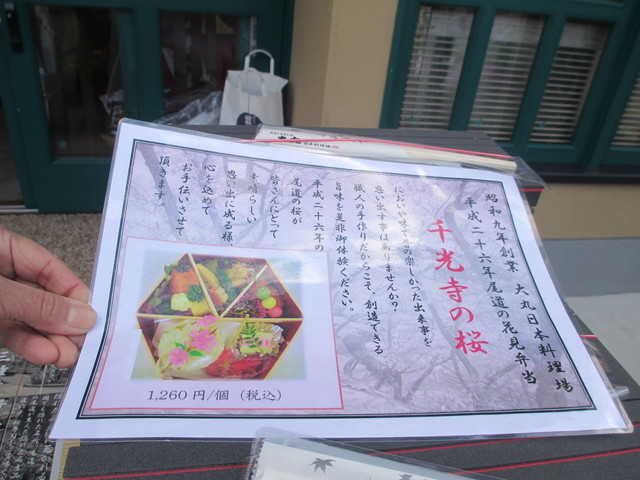 昭和九年創業 大丸日本料理場
平成二十六年尾道の花見弁当
千光寺の桜
においや味で昔の楽しかった出来事を
思い出す事はありませんか？
職人の手作りだからこそ、創造できる
旨味を是非御体験ください。
平成二十六年の
尾道の桜が
皆さんにとって
素晴らしい
思い出に成る様
心を込めて
お手伝いさせて
頂きます。
1,260 円/個（税込）